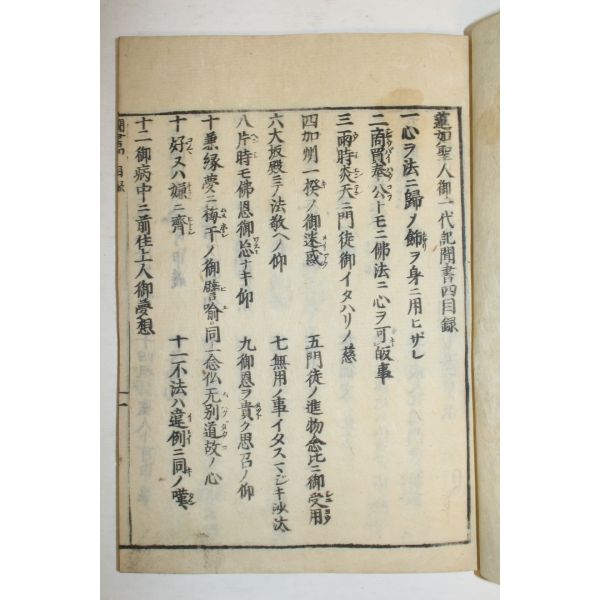 蓮如聖人御一代記聞書四目録
一心ヲ法ニ歸ノ飾ヲ身ニ用ヒザレ
二商買奉公トモニ佛法ニ心ヲ可皈事
三兩時炎天ニ門徒御イタハリノ慈
四加州一揆ノ御迷惑　五門徒ノ進物念比ニ御受用
六大坂殿ニテ法敬ヘノ仰　七無用ノ事イタスマジキ沙汰
八片時モ佛恩御忘ナキ仰　九御恩ヲ貴ク思召ノ仰
十兼縁夢ニ梅干ノ御譬喩同一念仏无別道故ノ心
十好又ハ嫌ニ齊　十一不法ハ違例ニ同ノ嘆
十二御病中ニ前住上人御夢想
目録